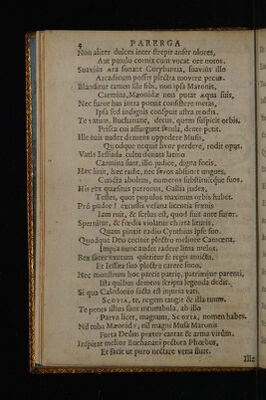 4 PARERGA
Non aliter dulces inter strepit anser olores,
Aut patulo cornix cum vocat ore notos.
Suavius æra sonant Corybantia, suavius illo
Arcadicum posset plectra movere pecus.
Blanditur tamen ille sibi, non ipsa Maronis,
Carmina, Mæonidæ non putat æqua suis,
Nec furor has intra potuit consistere metas,
Ipsa sed indignis conspuit astra modis.
Te vatum, Buchanane, decus, quem suspicit orbis,
Prisca cui assurgunt secula, dente petit.
Ille tuis audet demens oppedere Musis,
Quodque nequit livor perdere, rodit opus.
Vatis Iessiadæ culto donata latino
Carmina sunt, illo judice, digna focis.
Hæc linit, hæc radit, nec sævos abstinet ungues,
Cuncta abolens, numeros substituitque suos.
His rex quæsitus patronus, Gallia judex,
Testes, quot populos maximus orbis habet.
Prô pudor! excussis vesana licentia frænis
Iam ruit, & scelus est, quod fuit ante furor.
Spernitur, & fœdis violatur charta lituris,
Quam pinxit radio Cynthius ipse suo.
Quodque Deo cecinit plectro meliore Camœna,
Impia nunc audet radere lima melos.
Rex sacer vatum queritur se regis amictu,
Et Iessen suo plectra carere sono.
Nec monstrum hoc parcit patriæ, patriæque parenti,
Ista quibus demens scripta legenda dedit.
Si qua Caledonio facta est injuria vati,
SCOTIA, te, regem tangit & illa tuum.
Te penes istius sunt incunabula, ab illo
Parva licet, magnum, SCOTIA, nomen habes.
Nil tuba Mæonidæ, nil magni Musa Maronis
Forta Deûm præter cantat & arma virûm.
Inspirat melior Buchanani pectora Phœbus,
Et facit ut puro nectare vena fluat.
Illæ